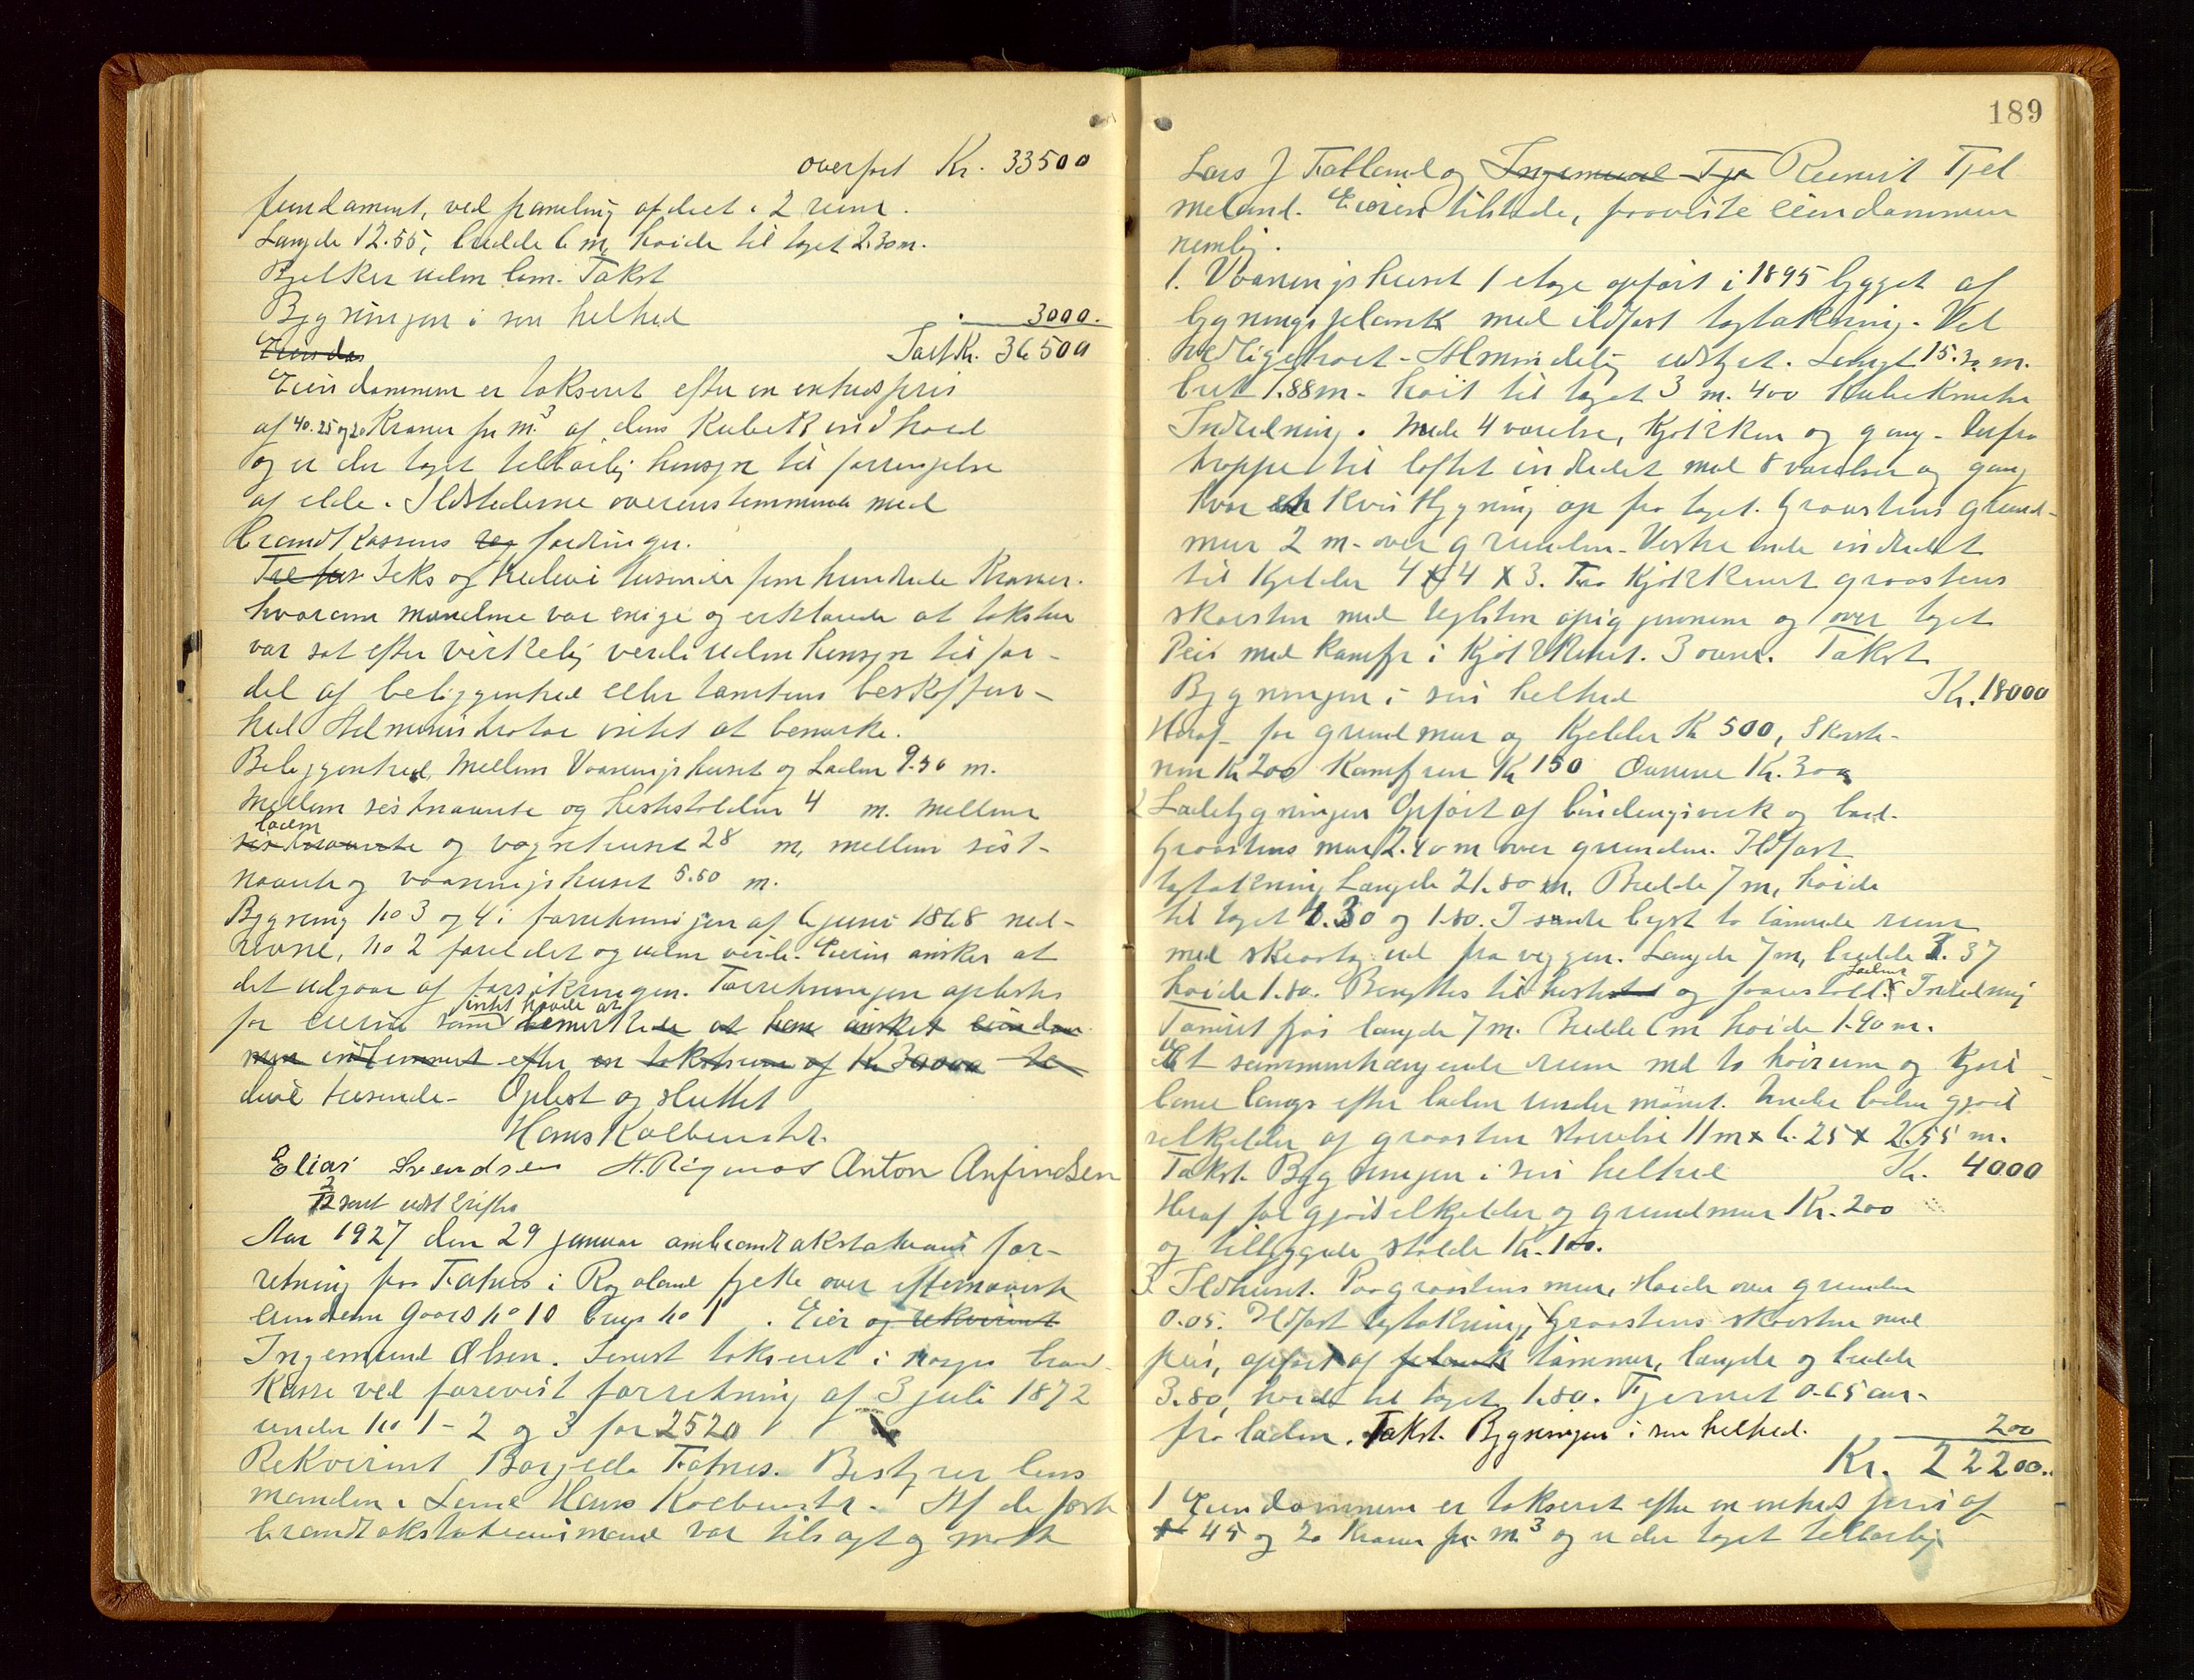 overført Kr. 33500
fundament, ved paneling afdelt i 2 rum.
Længde 12.55, bredde 6 m, høide til taget 2.30 m.
Bjelker uden lem. Takst
Bygningen i sin helhed 3000.
Eiendom Takst Kr. 36500
Eiendommen er takseret efter en enhedspris
af 40. 25 og 20 Kroner pr m³ af dens Kubikindhold
og er der taget tilbørlig hensyn til forringelse
af elde. Ildstederne overensstemmende med
brandkassens reg fordringer.
Tre fir Seks og tredeve tusende fem hundrede Kroner.
hvorom mændene var enige og erklærede at taksten
var sat efter virkelig verdi uden hensyn til for-
del af beliggenhed eller tomtens beskaffen-
hed Administrator intet at bemerke.
Beliggenhed, Mellem Vaaningshuset og Laden 9.50 m.
Mellem sistnævnte og hestestalden 4 m. mellem
laden
sistnævnte og vognhuset 28 m, mellem sist-
nævnte og vaaningshuset 5.50 m.
Bygning No 3 og 4 i forretningen af 6 juni 1868 ned-
revne, No 2 foreldet og uden verdi. Eieren ønsker at
det udgaar af forsikringen. Forretningen oplestes
intet havde at
for eieren som bemerkede at han ønsket eiendom
men indlemmet efter en takstsum af Kr 30000 tre
deve tusende - Oplest og sluttet
Hans Kolbenstv.
Elias Svendsen H. Rignæs Anton Anfindsen
3/12 sent udskrifter
Aar 1927 den 29 januar ambrandtakstations for-
retning paa Fatnes i Rogaland fylke over efternævnte
eiendom Gaards No 10 brugs No 1. Eier og rekvirent
Ingemund Olsen. Senest takseret i Norges brand-
kasse ved forevist forretning af 3 juli 1872
under No 1 - 2 og 3 for 2520
Rekvirent Borgilda Fatnes. Bestyrer lens
manden i Sand Hans Kolbenstv. Af de faste
brandtakstationsmænd var tilsagt og møtte
189
Lars J Fatland og Ingemund Tje Reinert Tjel
meland. Eieren tilstede, paaviste eiendommen
nemlig.
1. Vaaningshuset 1 etage opført i 1895 bygget af
bygningsplank med ildfast tagtækning. Vel
vedligeholdt - Almindelig udstyr. Længde 15.30 m.
bred 7.88 m. høit til taget 3 m. 400 Kubikmeter
Indredning. Nede 4 værelser, Kjøkken og gang. Derfra
trappe til loftet indredet med 8 værelser og gang
hvor en kvistbygning op fra taget. Graastens grund-
mur 2 m. over grunden. Vestre ende indredet
til Kjelder 4 x 4 x 3. Fra Kjøkkenet graastens
skorsten med teglsten opigjennem og over taget
Peis med kamfyr i Kjøkkenet. 3 ovner. Takst
Bygningen i sin helhed Kr. 18000
Heraf for grundmur og Kjelder Kr 500, Skorste-
nen Kr 200 Kamfyren Kr 150 Ovnene Kr. 300
2 Ladebygningen Opført af bindingsverk og bord.
Graastens mur 2.40 m over grunden. Ildfast
tagtækning Længde 21.80 m. Bredde 7 m, høide
til taget 4.30 og 1.80. I søndre byst to tømrede rum
med skraatag ud fra veggen. Længde 7 m, bredde 3.37
høide 1.80. Benyttes til heste og faarestald. Ladens Indredning
Tømret fjøs længde 7 m. Bredde 6 m høide 1.90 m.
Et sammenhængende rum med to høirum og Kjøre
bane langs efter laden under mønet. Under laden gjød
selkjelder af graasten størrelse 11 m x 6.25 x 2.55 m.
Takst. Bygningen i sin helhed Kr. 4000
Heraf for gjødselkjelder og grundmur Kr. 200
og tilbyggede stalde Kr. 100.
3. Ildhuset. Paa graastens mur, Høide over grunden
0.05. Ildfast tagtækning, Graastens skorsten med
peis, opført af plank tømmer, længde og bredde
3.80, høide til taget 1.80. Fjernet 0.65 cm.
fra laden. Takst. Bygningen i sin helhed. 200
Kr. 22200.
1 Eiendommen er takseret efter en enhedspris af
45 og 20 Kroner pr m³ og er der taget tilbørlig